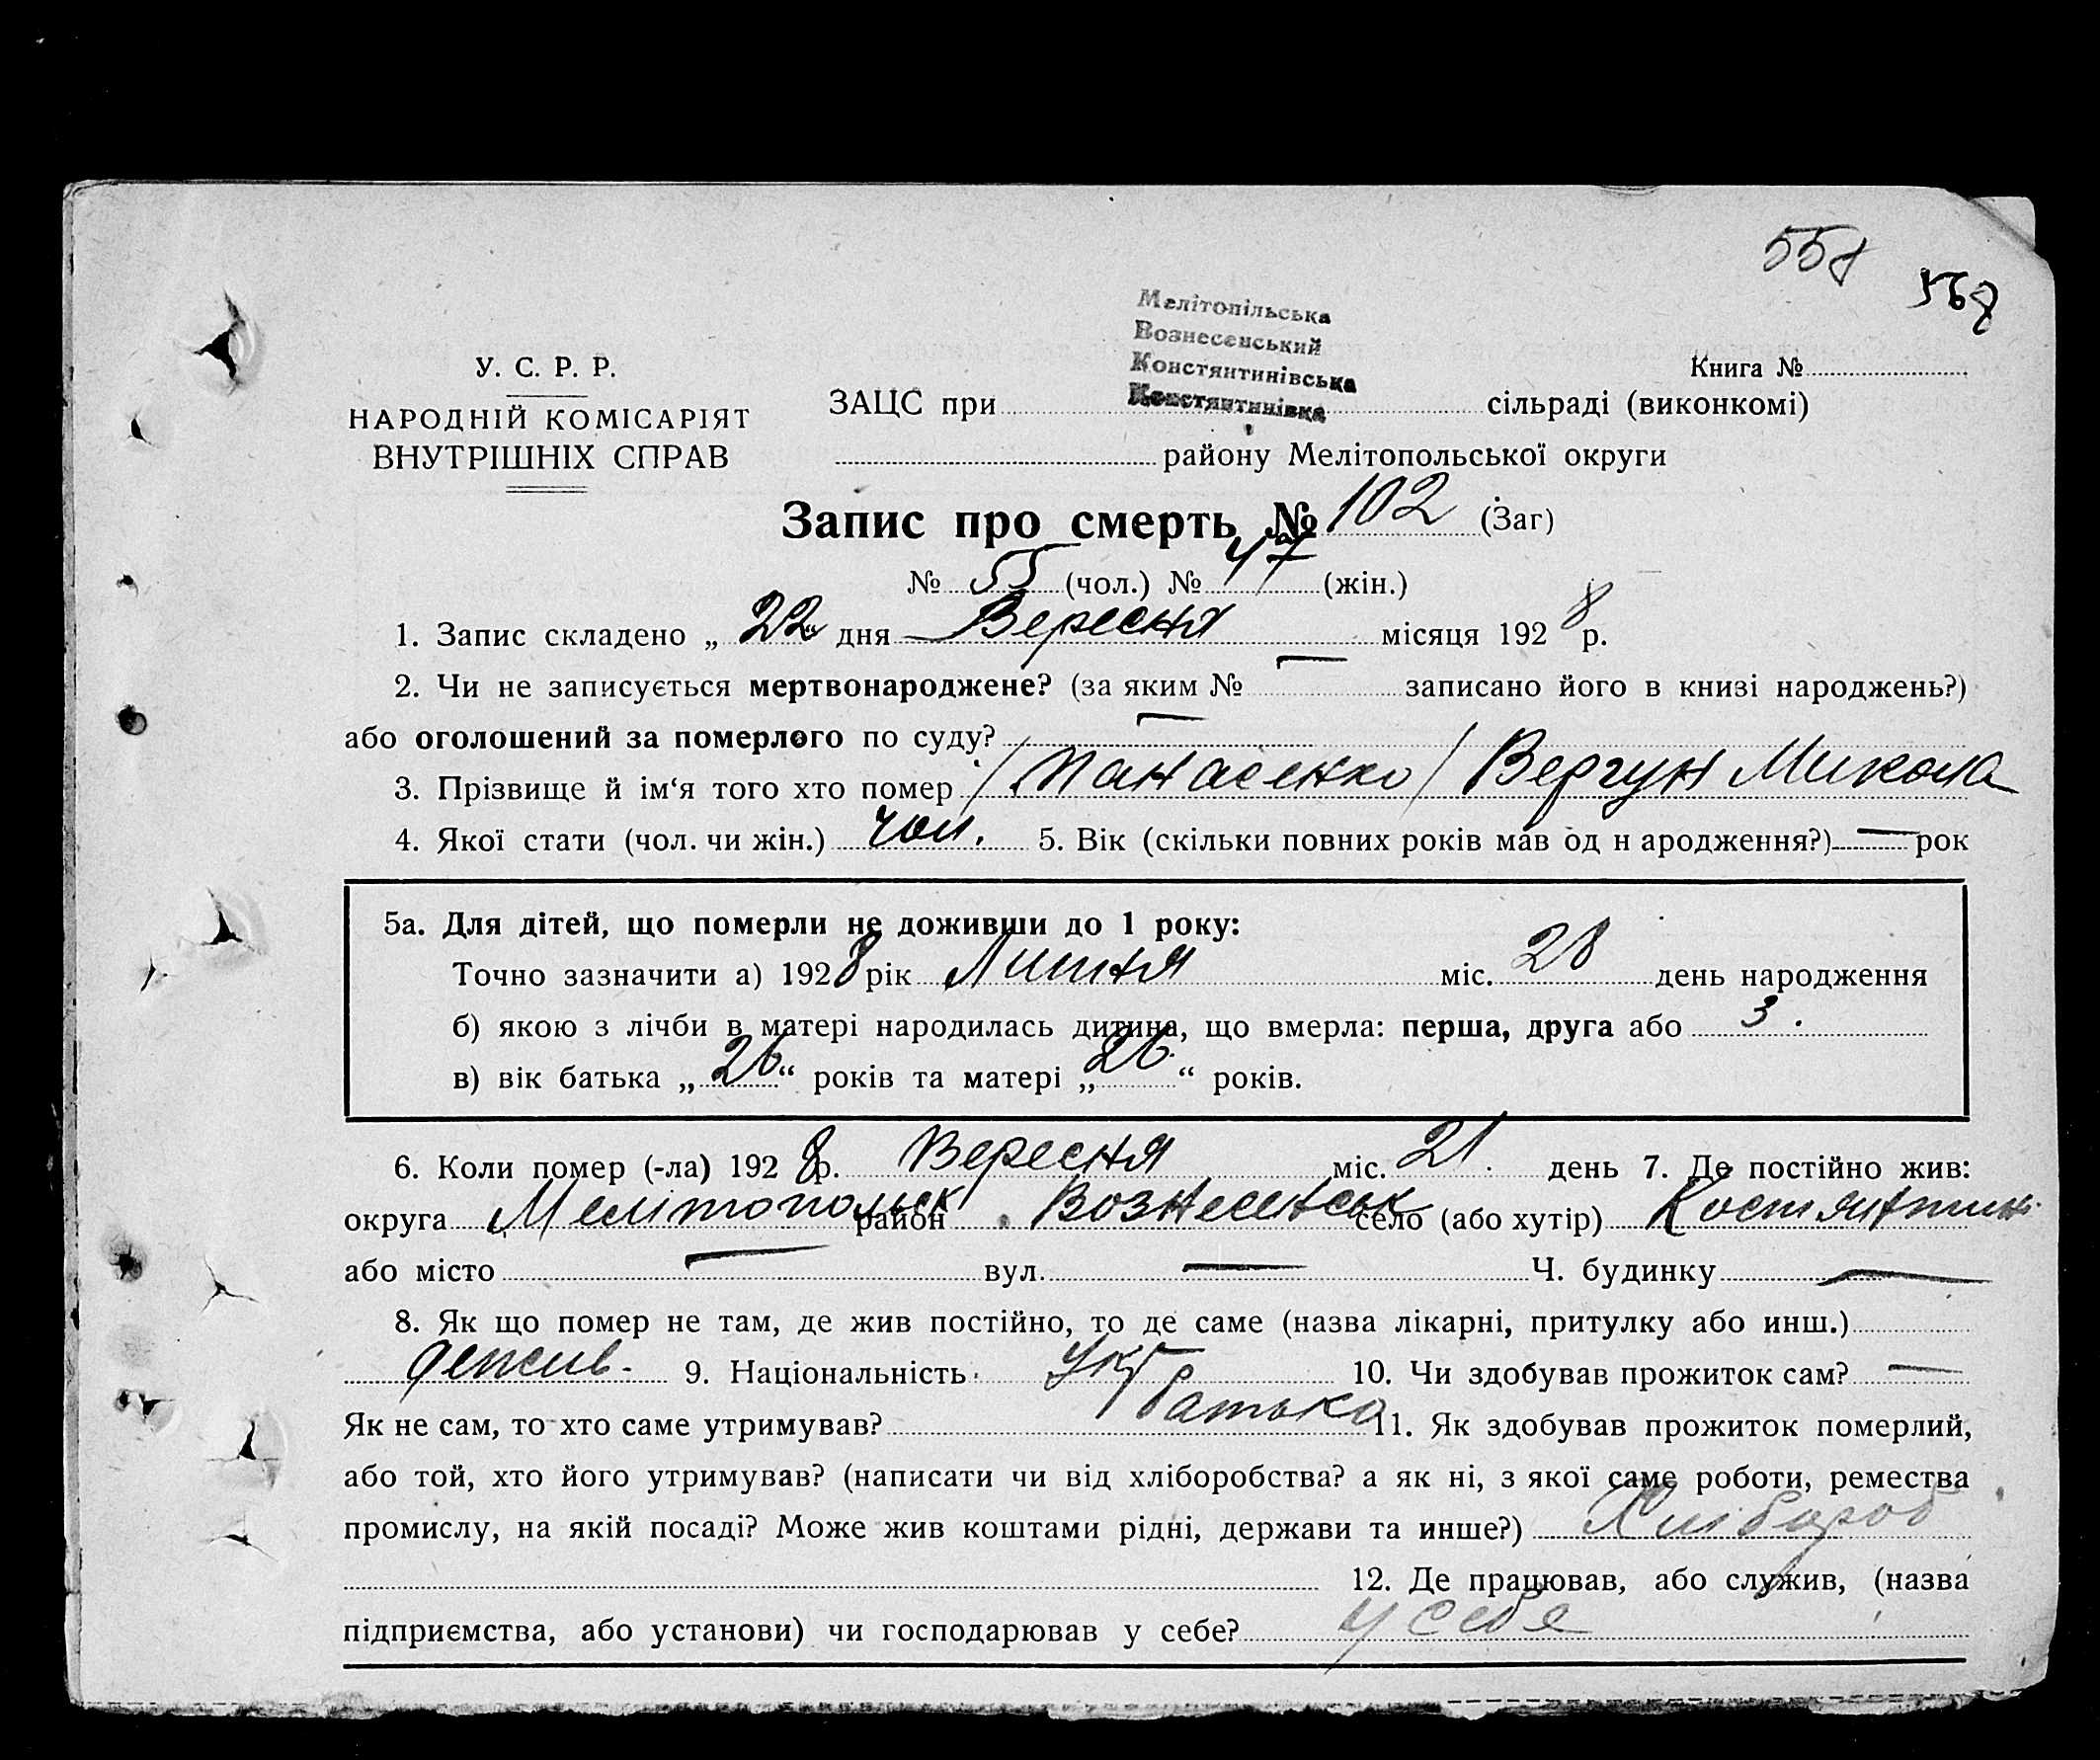 558
568
Мелітопільська
Вознесенський
Констянтинівська
Констянтинівка
У. С. Р. Р.
НАРОДНІЙ КОМІСАРІЯТ
ВНУТРІШНІХ СПРАВ
Книга №
ЗАЦС при сільраді (виконкомі)
району Мелітопольської округи
Запис про смерть № 102 (Заг)
№ 55 (чол.) № 47 (жін.)
1. Запис складено „ 22 “ дня Вересня місяця 1928 р.
2. Чи не записується мертвонароджене? (за яким № — записано його в книзі народжень?)
або оголошений за померлого по суду? —
3. Прізвище й ім‘я того хто помер /Панасенко/ Вергун Микола
4. Якої стати (чол. чи жін.) чол. 5. Вік (скільки повних років мав од н ародження?) — рок
5а. Для дітей, що померли не доживши до 1 року:
Точно зазначити а) 1928 рік Липня міс. 28 день народження
б) якою з лічби в матері народилась дитина, що вмерла: перша, друга або 3.
в) вік батька „ 26 “ років та матері „ 26 “ років.
6. Коли помер (-ла) 1928 р. Вересня міс. 21. день 7. Де постійно жив:
округа Мелітопольськ район Вознесенськ село (або хутір) Костянтин.
або місто — вул. — Ч. будинку —
8. Як що помер не там, де жив постійно, то де саме (назва лікарні, притулку або инш.)
де жив. 9. Національність Укр 10. Чи здобував прожиток сам? —
Як не сам, то хто саме утримував? батько 11. Як здобував прожиток померлий,
або той, хто його утримував? (написати чи від хліборобства? а як ні, з якої саме роботи, ремества
промислу, на якій посаді? Може жив коштами рідні, держави та инше?) Хлібороб
12. Де працював, або служив, (назва
підприємства, або установи) чи господарював у себе? у себе